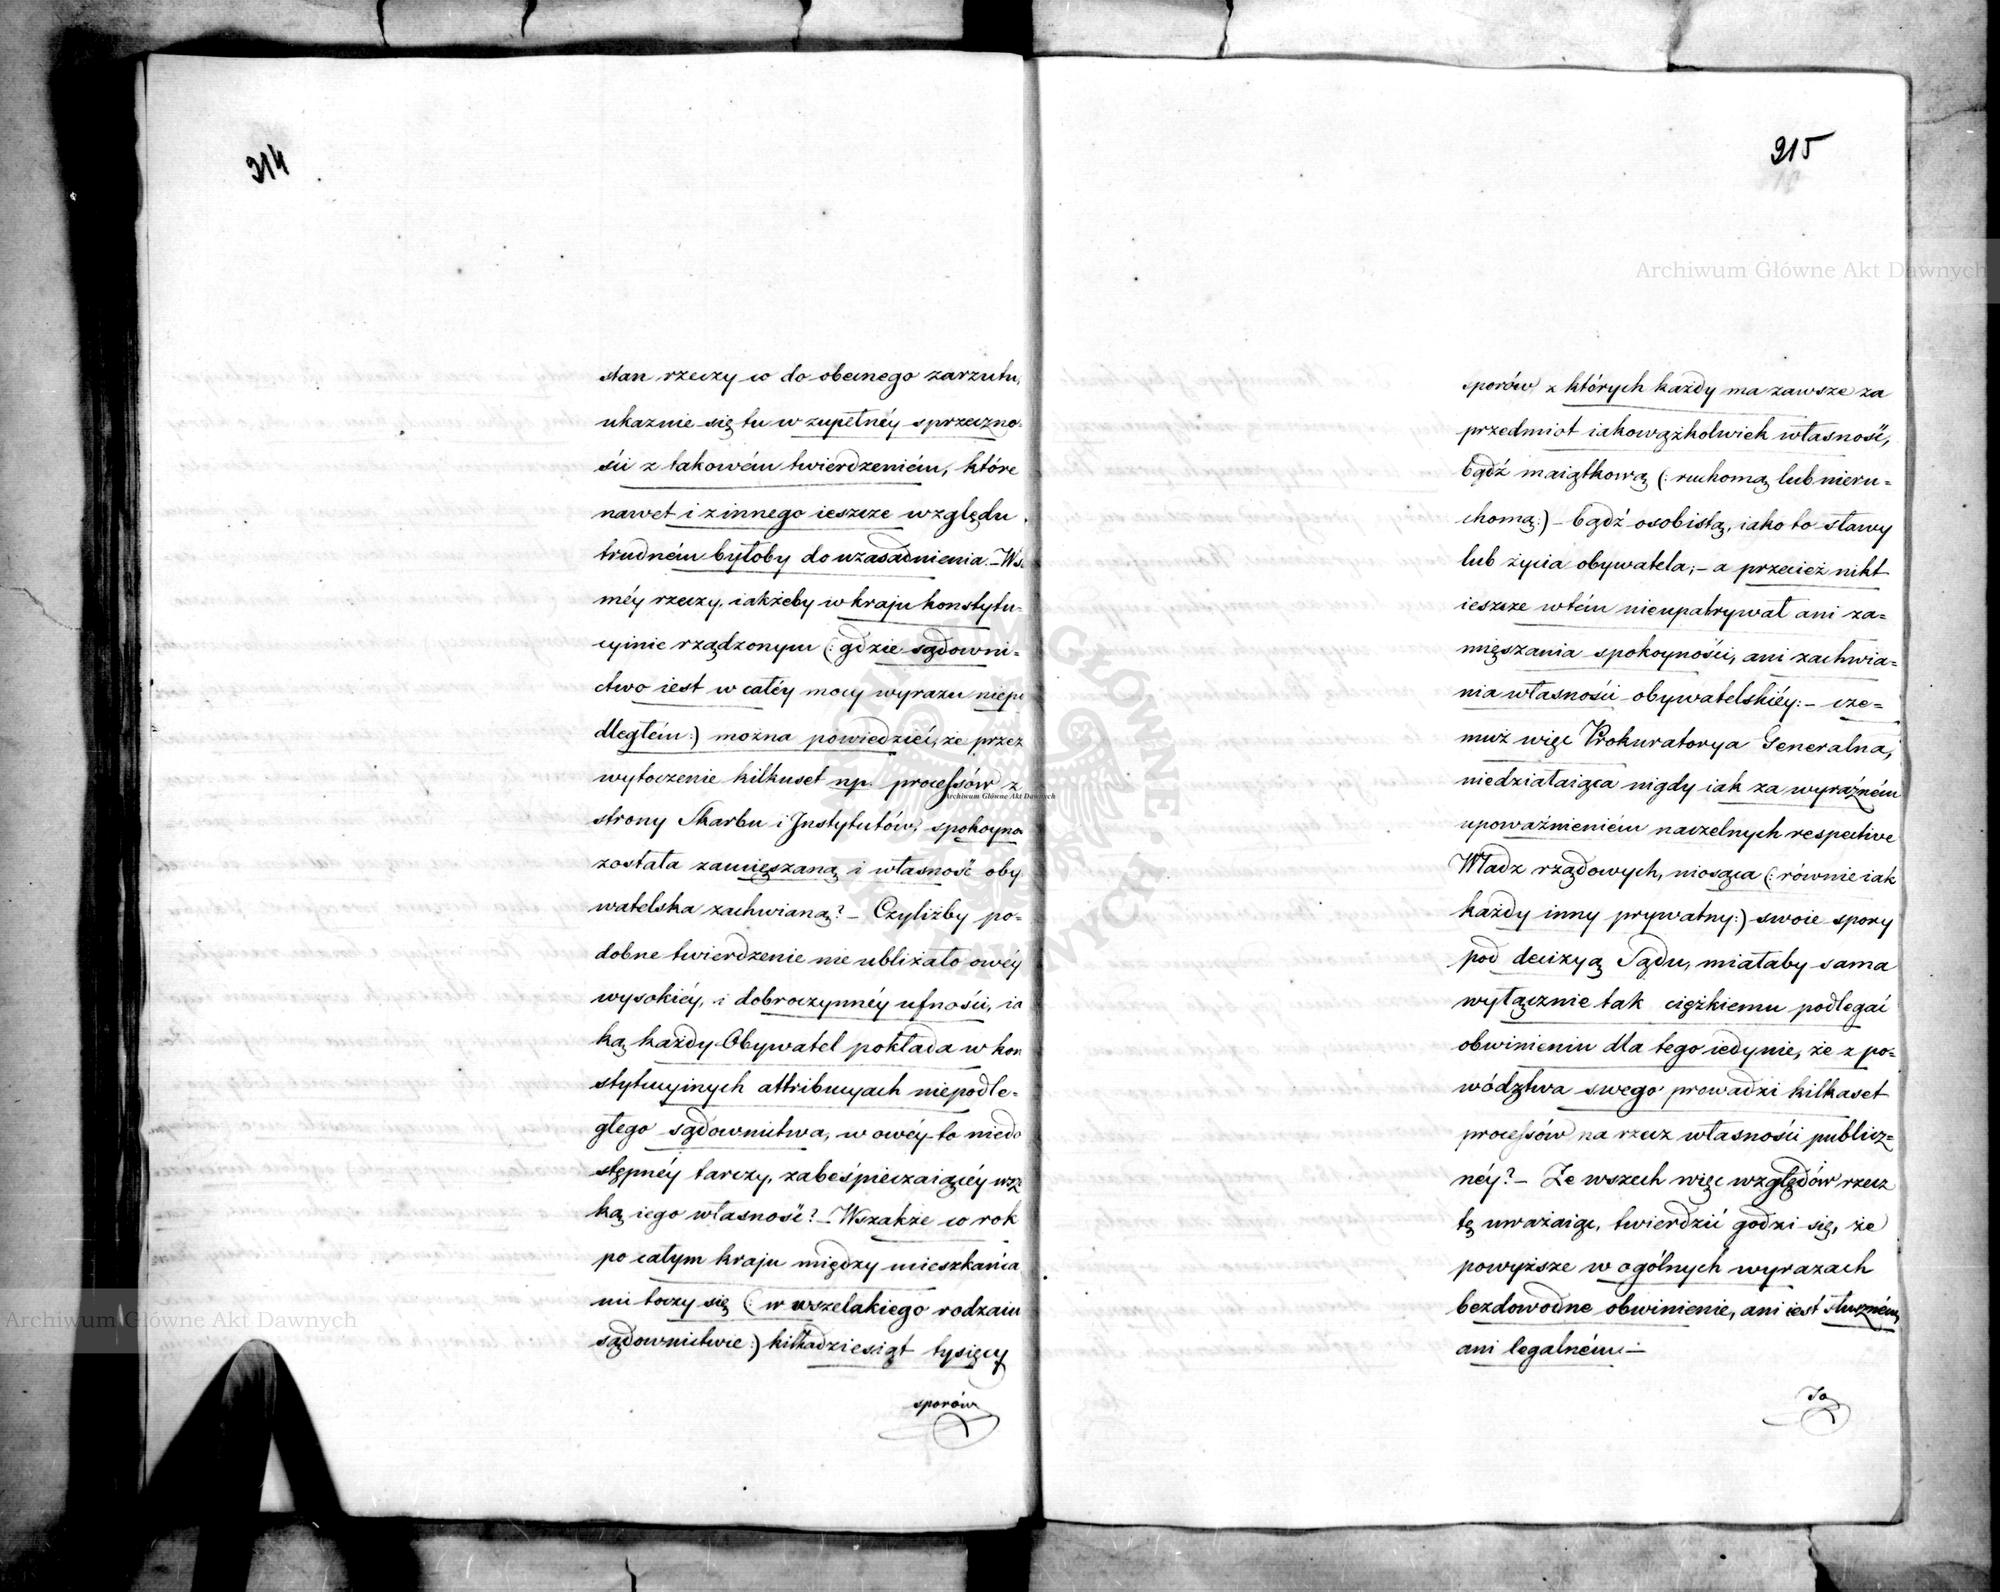 914
stan rzeczy co do obecnego zarzutu,
ukazuie się tu w zupełnéy sprzeczno-
ści z takowém twierdzeniém, które
nawet i z innego ieszcze względu
trudném byłoby do uzasadnienia. – W sa
méy rzeczy, iakżeby w kraju konstytu-
cyinie rządzonym (: gdzie sądowni=
ctwo iest w całéy mocy wyrazu niepo
dległém :) można powiedzieć, że przez
wytoczenie kilkuset np. processów z
strony Skarbu i Instytutów, spokoyno
została zamięszaną i własność oby
watelska zachwianą? – Czyliżby po-
dobne twierdzenie nie ubliżało owéy
wysokiéy, i dobroczynnéy ufności, ia
ką każdy Obywatel pokłada w kon
stytucyinych attribucyach niepodle-
głego sądownictwa, w owéy to niedo
stępnéy tarczy, zabeśpieczaiącéy wsze
ką iego własność? – Wszakże co rok
po całym kraju między mieszkańca
mi toczy się (: w wszelakiego rodzaiu
sądownictwie :) kilkadziesiąt tysięcy
sporów
915
sporów z których każdy ma zawsze za
przedmiot iakowążkolwiek własność,
bądź maiątkową (: ruchomą lub nieru=
chomą :) – bądź osobistą, iako to sławy
lub życia obywatela; – a przecież nikt
ieszcze w tém nieupatrywał ani za=
mięszania spokoyności, ani zachwia=
nia własności obywatelskiéy: – cze=
muż więc Prokuratorya Generalna,
niedziałaiąca nigdy iak za wyraźném
upoważnieniém naczelnych respective
Władz rządowych, niosąca (: równie iak
każdy inny prywatny :) swoie spory
pod decizyą Sądu, miałaby sama
wyłącznie tak ciężkiemu podlegać
obwinieniu dla tego iedynie, że z po=
wództwa swego prowadzi kilkaset
processów na rzecz własności publicz=
néy? – Ze wszech więc względów rzecz
tę uważaiąc, twierdzić godzi się, że
powyższe w ogólnych wyrazach
bezdowodne obwinienie, ani iest słuszném,
ani legalném: –
Archiwum Główne Akt Dawnych
Archiwum Główne Akt Dawnych
Archiwum Główne Akt Dawnych